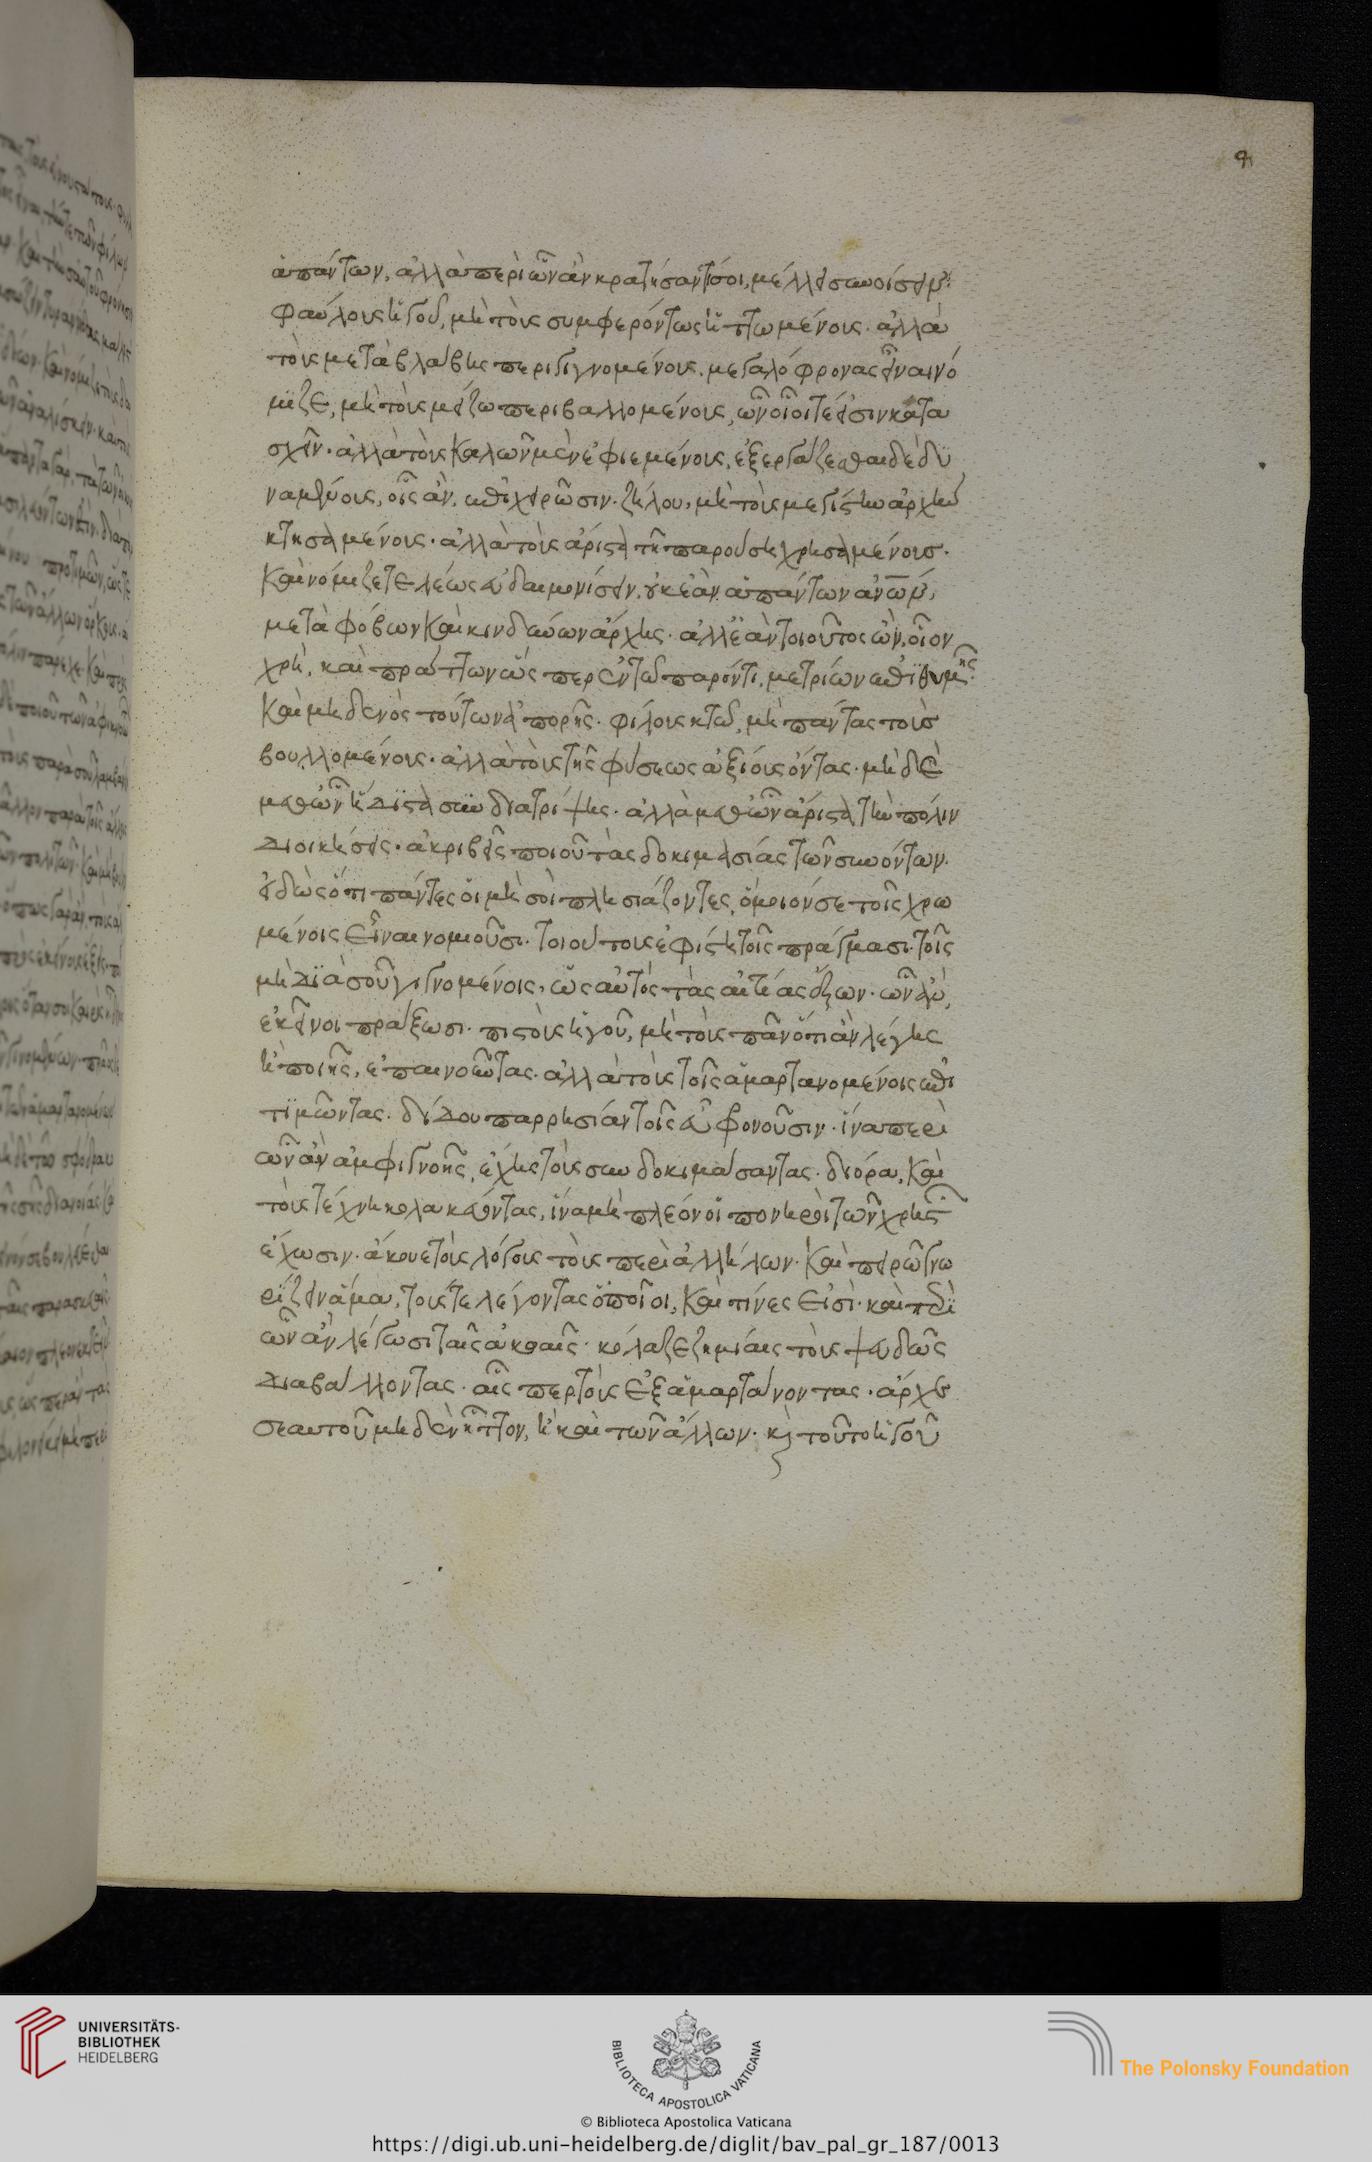 ἁπάντων, ἀλλὰ περὶ ὧν ἂν κρατήσαντί σοι, μέλλει συνοίσειν·
φαύλους ἡγοῦ, μὴ τοὺς συμφερόντως ἡττωμένους· ἀλλὰ
τοὺς μετὰ βλάβης περιγιγνομένους. μεγαλόφρονας εἶναι νό
μιζε, μὴ τοὺς μείζω περιβαλλομένους, ὧν οἷοί τέ εἰσιν κατα
σχεῖν· ἀλλὰ τοὺς καλῶν μὲν ἐφιεμένους, ἐξεργάζεσθαι δὲ δυ
ναμένους, οἷς ἂν ἐπιχειρῶσιν. ζήλου, μὴ τοὺς μεγίστην ἀρχὴν
κτησαμένους· ἀλλὰ τοὺς ἄριστα τῇ παρούσῃ χρησαμένους.
καὶ νόμιζε τελέως εὐδαιμονήσειν, οὐκ ἐὰν ἁπάντων ἀνων,
μετὰ φόβων καὶ κινδύνων ἄρχῃς· ἀλλ' ἐὰν τοιοῦτος ὢν, οἷον
χρὴ, καὶ πράττων ὥσπερ ἐν τῷ παρόντι, μετρίων ἐπιθυμῇς·
καὶ μηδενὸς τούτων ἀπορῇς. φίλους κτῶ, μὴ πάντας τοὺς
βουλλομένους· ἀλλὰ τοὺς τῆς φύσεως ἀξίους ὄντας· μὴ δὲ
μεθ' ὧν ἥδιστα συνδιατρίψῃς· ἀλλὰ μεθ' ὧν ἄριστα τὴν πόλιν
διοικήσεις. ἀκριβεῖς ποιοῦ τὰς δοκιμασίας τῶν συνόντων.
εἰδὼς ὅτι πάντες οἱ μὴ σοὶ πλησιάζοντες, ὅμοιόν σε τοῖς χρω
μένοις εἶναι νομιοῦσι. τοιούτους ἐφίστη τοῖς πράγμασι τοῖς
μὴ διὰ σοῦ γιγνομένοις, ὡς αὐτὸς τὰς αἰτίας ἕξων· ὧν ἂν,
ἐκεῖνοι πράξωσι. πιστοὺς ἡγοῦ, μὴ τοὺς πᾶν ὅτι ἂν λέγῃς
ἢ ποιῇς, ἐπαινοῦντας· ἀλλὰ τοὺς τοῖς ἁμαρτανομένοις ἐπι
τιμῶντας. δίδου παρρησίαν τοῖς εὖ φρονοῦσιν· ἵνα περὶ
ὧν ἂν ἀμφιγνοῇς, ἔχῃς τοὺς συνδοκιμάσαντας. διόρα, καὶ
τοὺς τέχνῃ κολακεύοντας, ἵνα μὴ πλέον οἱ πονηροὶ τῶν χρηστῶν
ἔχωσιν. ἄκουε τοὺς λόγους τοὺς περὶ ἀλλήλων. καὶ πειρῶ γνω
ρίζειν ἅμα, τούς τε λέγοντας ὁποῖοι, καὶ τίνες εἰσὶ· καὶ περὶ
ὧν ἂν λέγωσι ταῖς ἀκοαῖς. κόλαζε ζημίαις τοὺς ψευδῶς
διαβάλλοντας· αἷς περ τοὺς ἐξαμαρτάνοντας. ἄρχε
σεαυτοῦ μηδὲν ἧττον, ἢ καὶ τῶν ἄλλων. καὶ τοῦτο ἡγοῦ
UNIVERSITÄTS-
BIBLIOTHEK
HEIDELBERG
BIBLIOTECA APOSTOLICA VATICANA
The Polonsky Foundation
© Biblioteca Apostolica Vaticana
https://digi.ub.uni-heidelberg.de/diglit/bav_pal_gr_187/0013